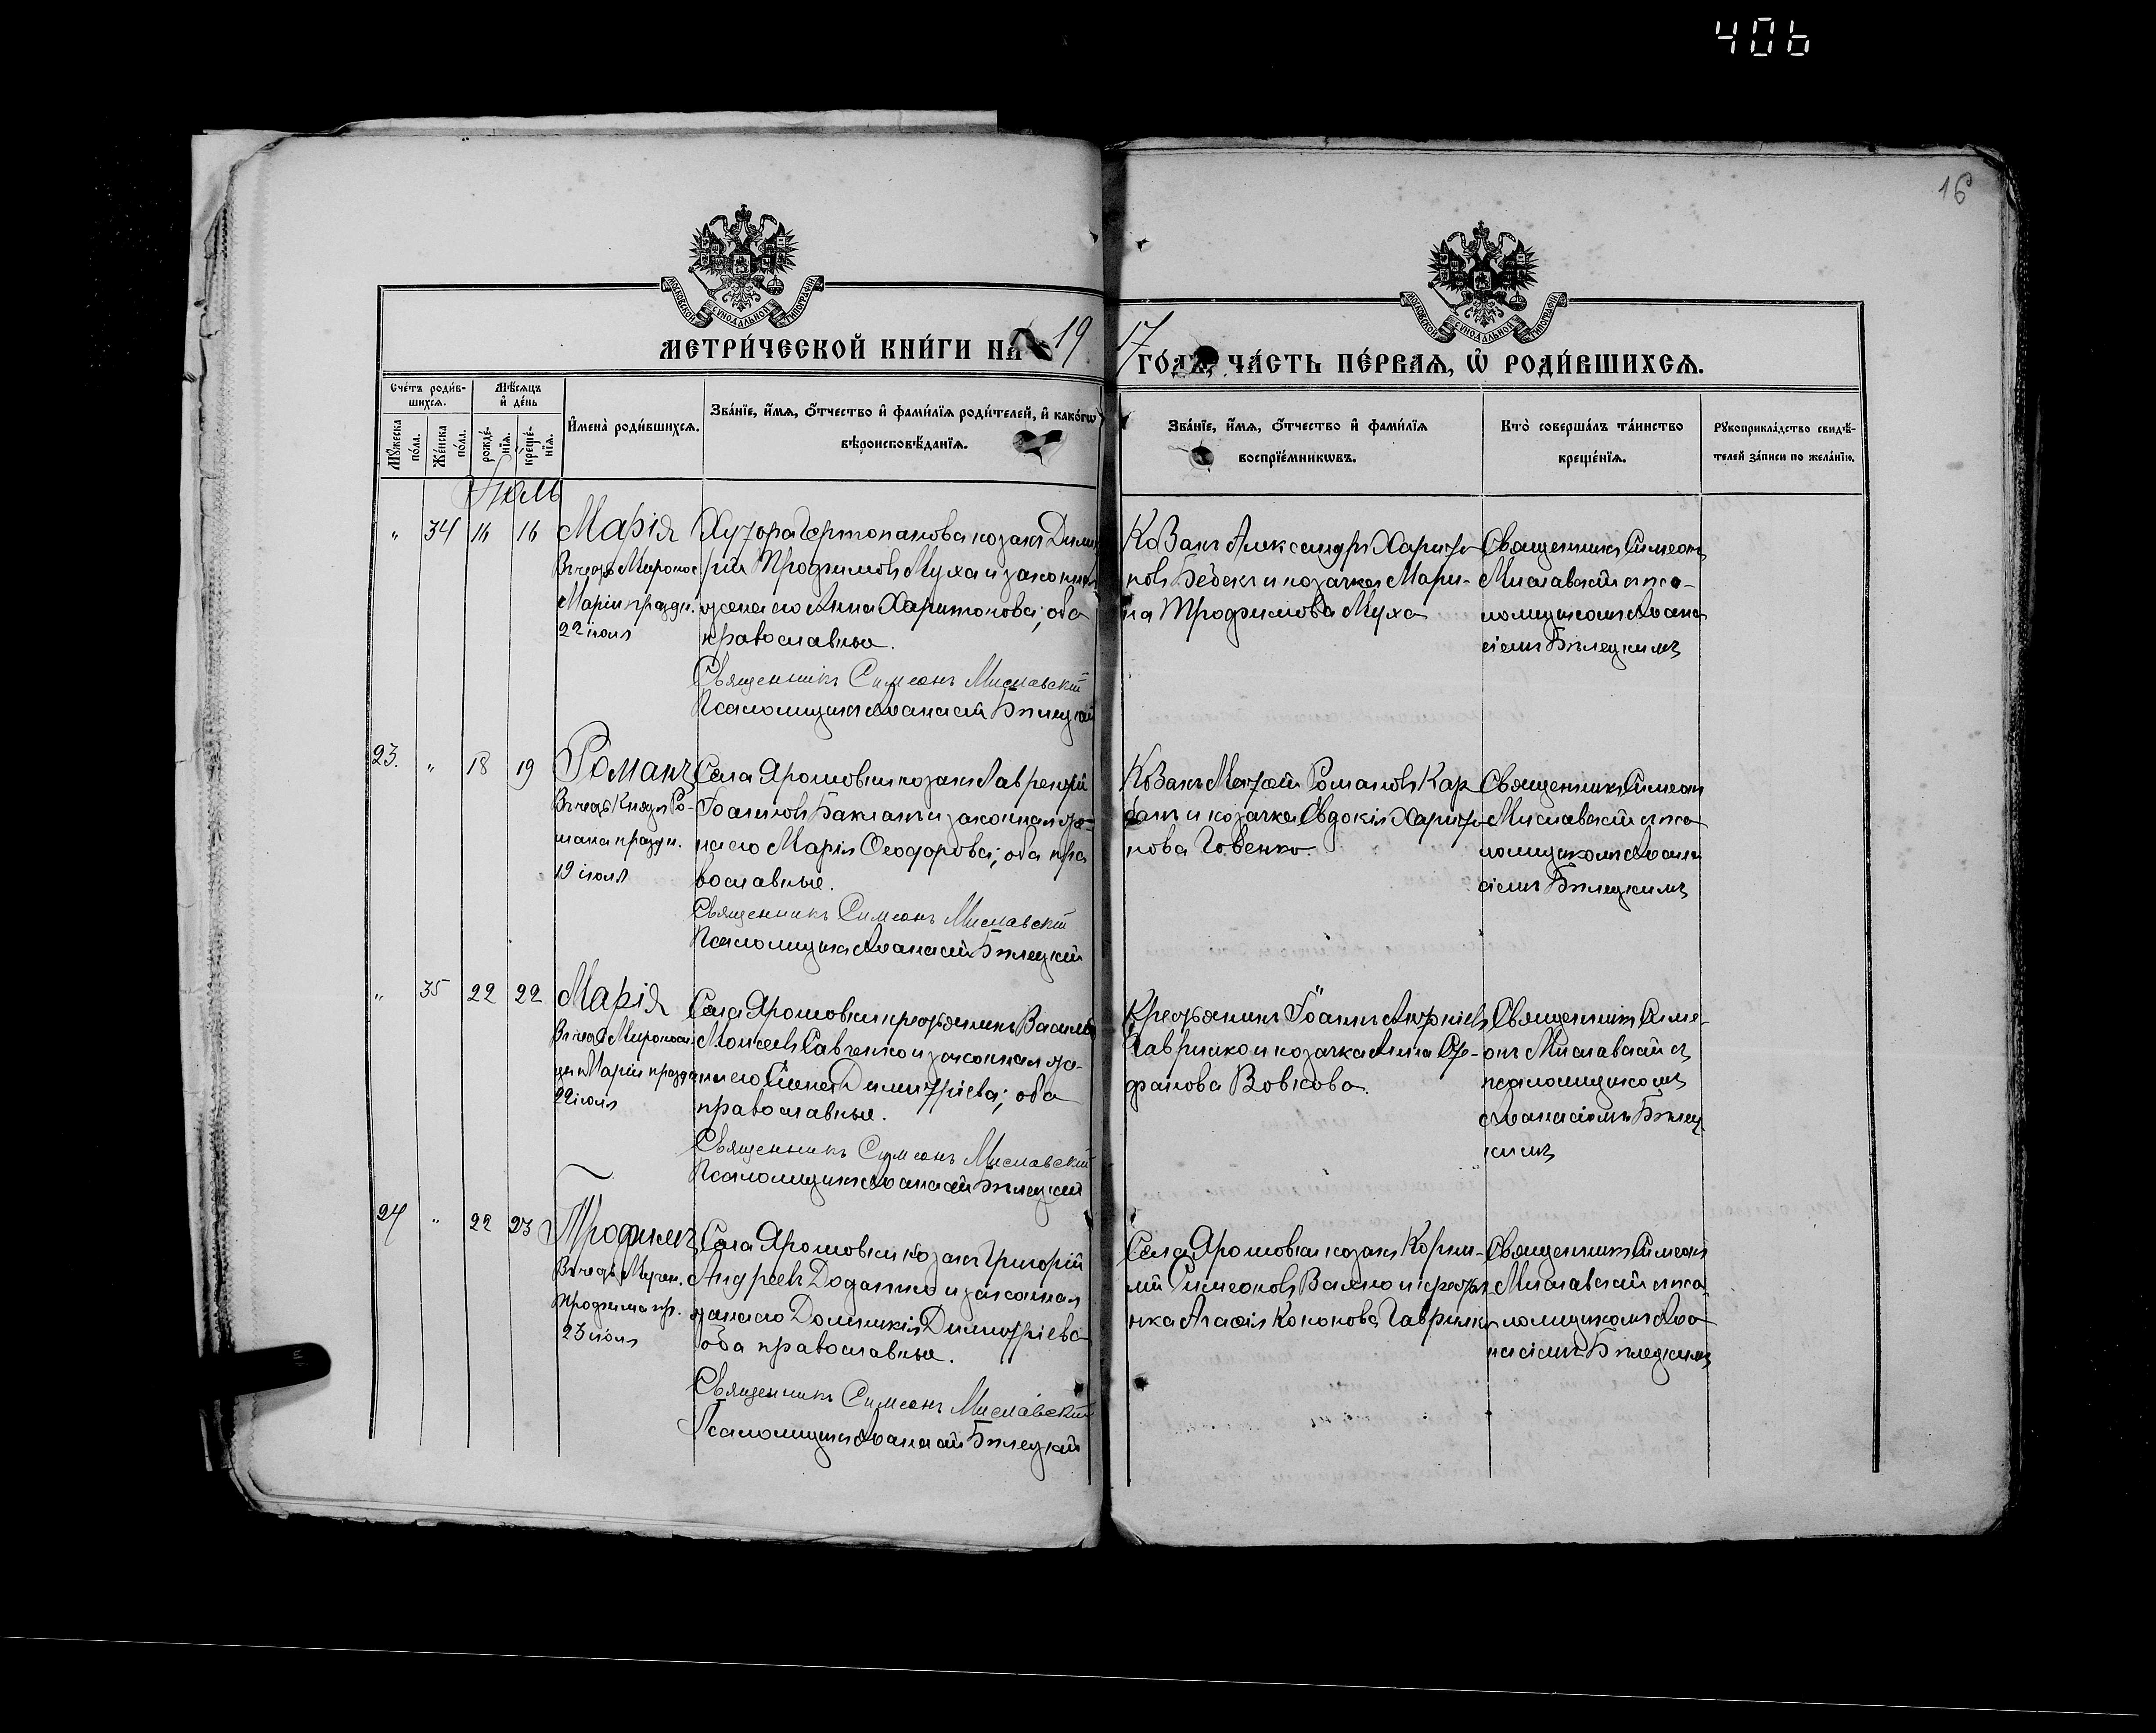 406
16
МОСКОВСКОЙ СѴНОДАЛЬНОЙ ТИПОГРАФІИ
МОСКОВСКОЙ СѴНОДАЛЬНОЙ ТИПОГРАФІИ
МЕТРИ́ЧЕСКОЙ КНИ́ГИ НА 19
17 ГО́ДА, ЧА́СТЬ ПЕ́РВАЯ, Ѿ РОДИ́ВШИХСЯ.
Сче́тъ роди́в-
шихся.
Мѣ́сяцъ
и҆ де́нь
Мꙋ́жеска
по́ла.
Же́нска
по́ла.
рожде́-
нїя.
креще́-
нїя.
И҆мена̀ роди́вшихся.
Зва́нїе, и҆́мя, ѻ҆́тчество и҆ фами́лїя роди́телей, и҆ како́гѡ
вѣроисповѣ́данїя.
Зва́нїе, и҆́мя, ѻ҆́тчество и҆ фами́лїя
воспрїе́мникѡвъ.
Кто̀ соверша́лъ та́инство
креще́нїя.
Рꙋкоприкла́дство свидѣ́-
телей за́писи по жела́нїю.
Іюль
" 34 16 16
Марія
Въ честь Мѵронос
Маріи праздн.
22 іюля
Хутора козакъ Дими
рій Трофимовъ Муха и законная
жена его Анна Харитонова; оба
православные.
Священникъ Симеонъ Миславскій
Псаломщикъ Аѳанасій Бѣлецкій
Козакъ Александръ Харито-
новъ Бебекъ и козачка Мари-
на Трофимова Муха
Священникъ Симеонъ
Миславскій съ пса-
ломщикомъ Аѳана
сіемъ Бѣлецкимъ
23. " 18 19
Романъ
Въ честь Князя Ро-
мана праздн.
19 іюля
Села Ярошовки козакъ Лаврентій
Іоанновъ Баклакъ и законная же-
на его Марія Ѳеодорова; оба пра
вославные.
Священникъ Симеонъ Миславскій
Псаломщикъ Аѳанасій Бѣлецкій
Козакъ Матѳей Романовъ Кар
банъ и козачка Евдокія Харито-
нова Говенко.
Священникъ Симеонъ
Миславскій съ пса
ломщикомъ Аѳана
сіемъ Бѣлецкимъ
" 35 22 22
Марія
Въ честь Мѵронос.
цы Маріи праздн
22 іюля
Села Ярошовки крестьянинъ Василій
Моисеевъ Савченко и законная же-
на его Елена Димитріева; оба
православные.
Священникъ Симеонъ Миславскій
Псаломщикъ Аѳанасій Бѣлецкій
Крестьянинъ Іоаннъ
Гавришко и козачка Анна Сте-
фанова Вовкова.
Священникъ Симе-
онъ Миславскій съ
псаломщикомъ
Аѳанасіемъ Бѣлец-
кимъ
24 " 22 23
Трофимъ
Въ честь Мучен.
Трофима пр.
23 іюля
Села Ярошовки козакъ Григорій
Андреевъ Додатко и законная
жена его Домникія Димитріева
оба православные.
Священникъ Симеонъ Миславскій
Псаломщикъ Аѳанасій Бѣлецкій
Села Ярошовки козакъ Корни-
лій Симеоновъ и крестьян
нка Агаѳія Кононова Гавришко
Священникъ Симеонъ
Миславскій съ пса
ломщикомъ Аѳа
насіемъ Бѣлецкимъ